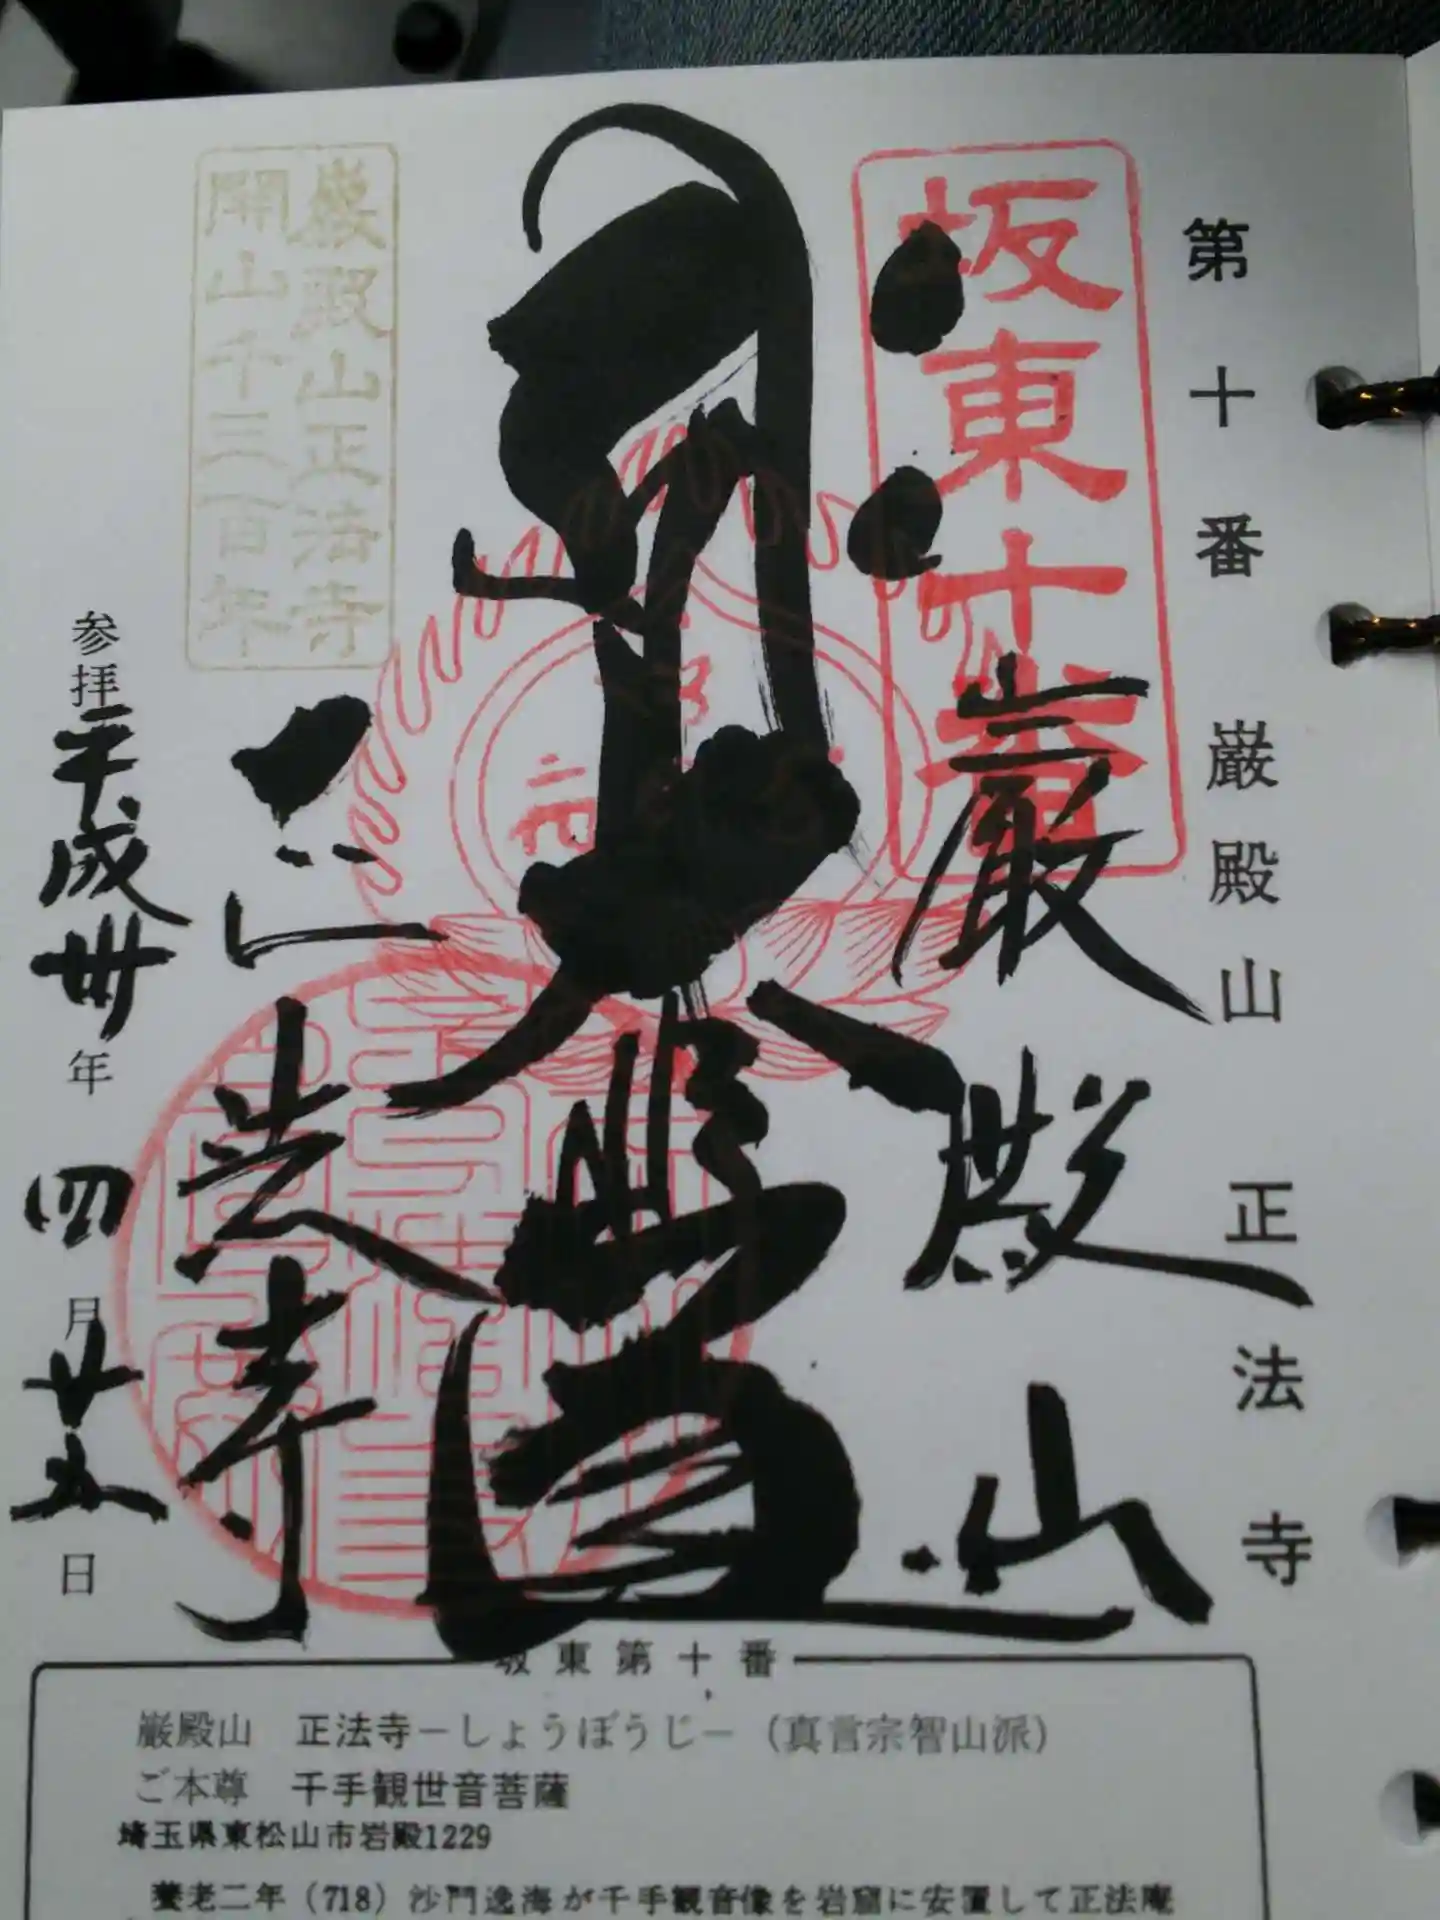 第十番 巌殿山 正法寺
坂東十番
巌殿山
正法寺
巌殿山正法寺
開山千三百年
参拝平成卅年四月廿五日
坂東第十番
巌殿山 正法寺－しょうぼうじ－（真言宗智山派）
ご本尊 千手観世音菩薩
埼玉県東松山市岩殿1229
養老二年（718）沙門逸海が千手観音像を岩窟に安置して正法庵